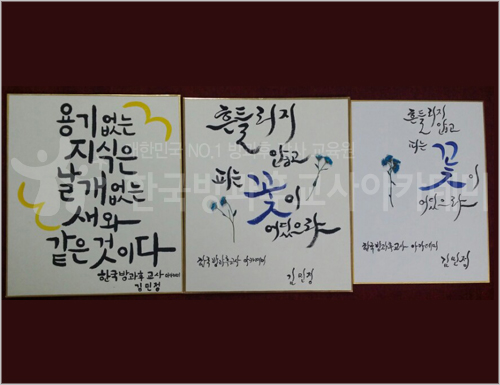 용기없는
지식은
날개없는
새와
같은것이다
한국방과후교사 아카데미
김민정
흔들리지
않고
피는 꽃이
어딨으랴
한국방과후교사 아카데미
김민정
흔들리지
않고
피는 꽃이
어딨으랴
한국방과후교사 아카데미
김민정
대한민국 NO.1 방과후 교사 교육원
한국방과후교사아카데미